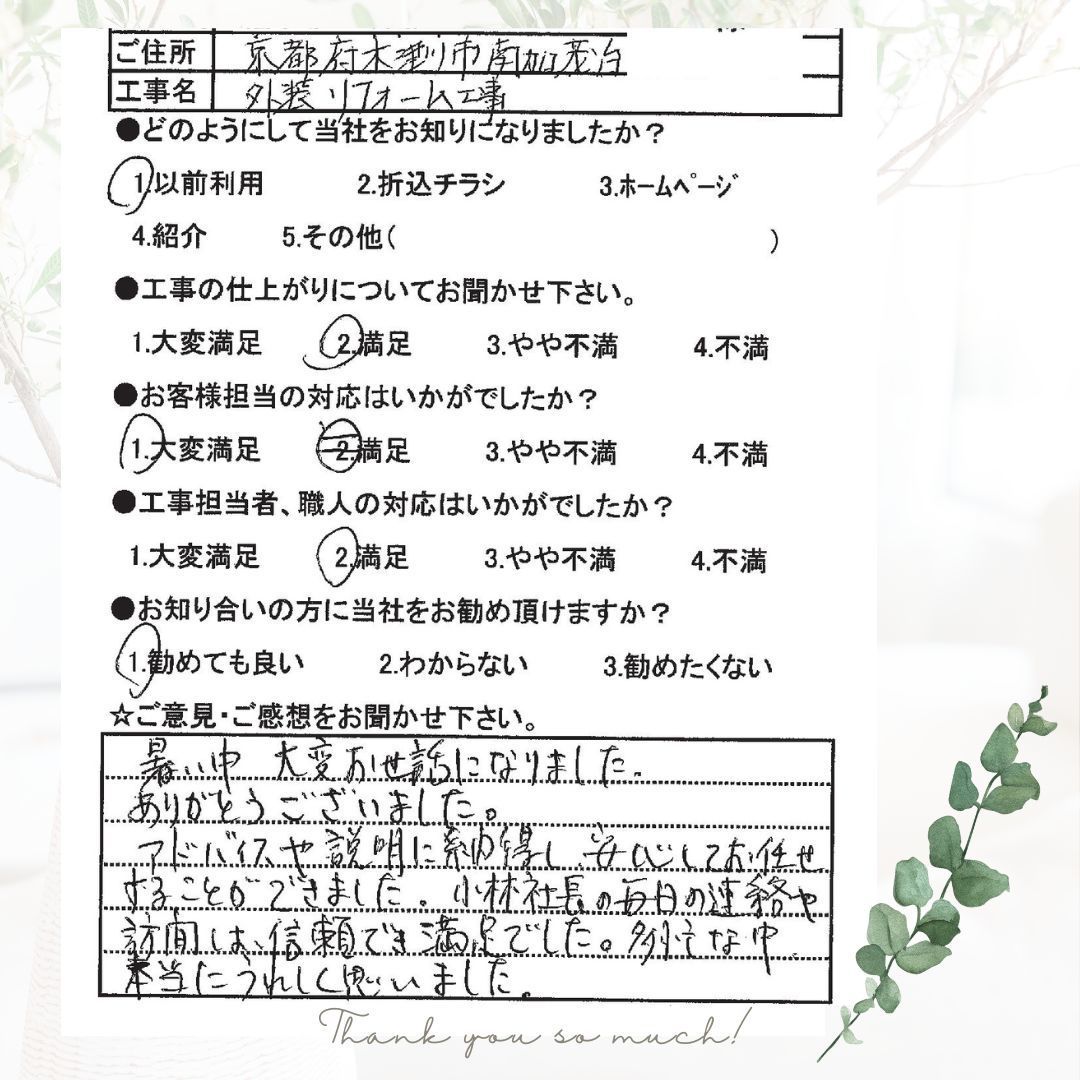 ご住所 京都府木津川市南加茂台
工事名 外装リフォーム工事
●どのようにして当社をお知りになりましたか？
1.以前利用 2.折込チラシ 3.ﾎｰﾑﾍﾟｰｼﾞ
4.紹介 5.その他( )
●工事の仕上がりについてお聞かせ下さい。
1.大変満足 2.満足 3.やや不満 4.不満
●お客様担当の対応はいかがでしたか？
1.大変満足 2.満足 3.やや不満 4.不満
●工事担当者、職人の対応はいかがでしたか？
1.大変満足 2.満足 3.やや不満 4.不満
●お知り合いの方に当社をお勧め頂けますか？
1.勧めても良い 2.わからない 3.勧めたくない
☆ご意見・ご感想をお聞かせ下さい。
暑い中 大変お世話になりました。
ありがとうございました。
アドバイスや説明に納得し、安心してお任せ
することができました。小林社長の毎日の連絡や
訪問は、信頼でき満足でした。多忙な中
本当にうれしく思いました。
Thank you so much!